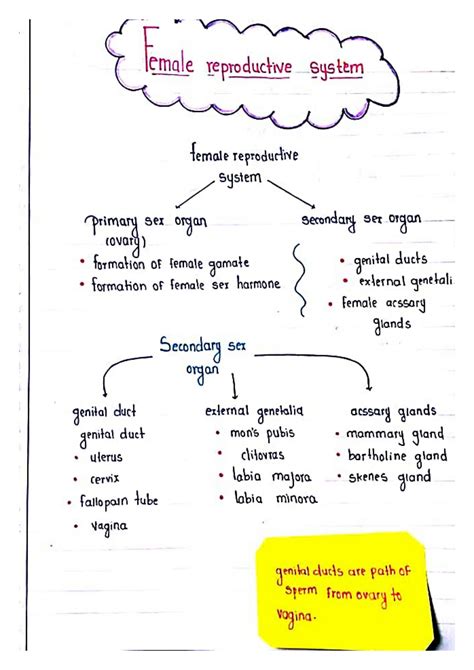 Female reproductive system
female reproductive
system
primary sex organ
(ovary)
• formation of female gamate
• formation of female sex harmone
secondary sex organ
• genital ducts
• external genetali
• female acssary
glands
Secondary sex
organ
genital duct
genital duct
• uterus
• cervix
• fallopain tube
• vagina
external genetalia
• mon's pubis
• clitovras
• labia majora
• labia minora
acssary glands
• mammary gland
• bartholine gland
• skenes gland
genital ducts are path of
sperm from ovary to
vagina.